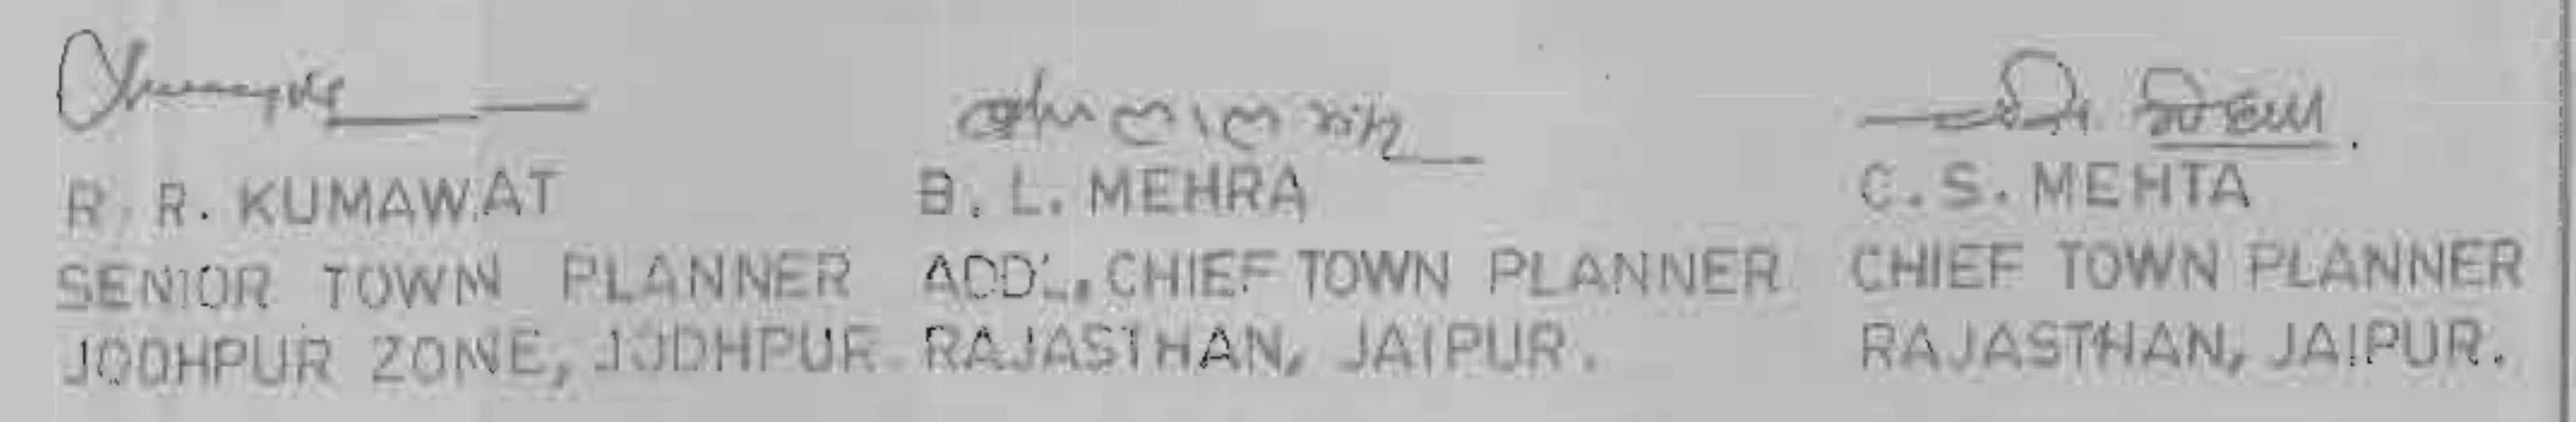 R. R. KUMAWAT
SENIOR TOWN PLANNER
JODHPUR ZONE, JODHPUR.
B. L. MEHRA
ADD'L, CHIEF TOWN PLANNER
RAJASTHAN, JAIPUR.
C. S. MEHTA
CHIEF TOWN PLANNER
RAJASTHAN, JAIPUR.